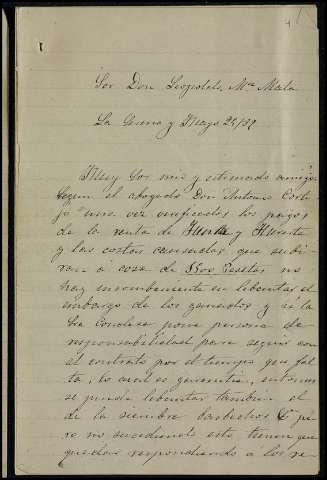 Sor Don Leopoldo, Mª Mata
La y Mayo 25/89
Muy Sor mio y estimado amigo:
Segun el abogado Don Antonio Corti
jo una vez verificados los pagos
de la renta de y
y las costas causadas que subi
ran a cosa de Pesetas no
hay inconveniente en libertar el
embargo de los ganados y si la
Sra Condesa pone persona de
responsabilidad para seguir con
el contrato por el tiempo que fal
ta, lo cual es garantia, entonces
se puede libertar tambien el
de la siembra barbechos &ª pe
ro no sucediendo esto tienen que
quedar respondiendo a los re